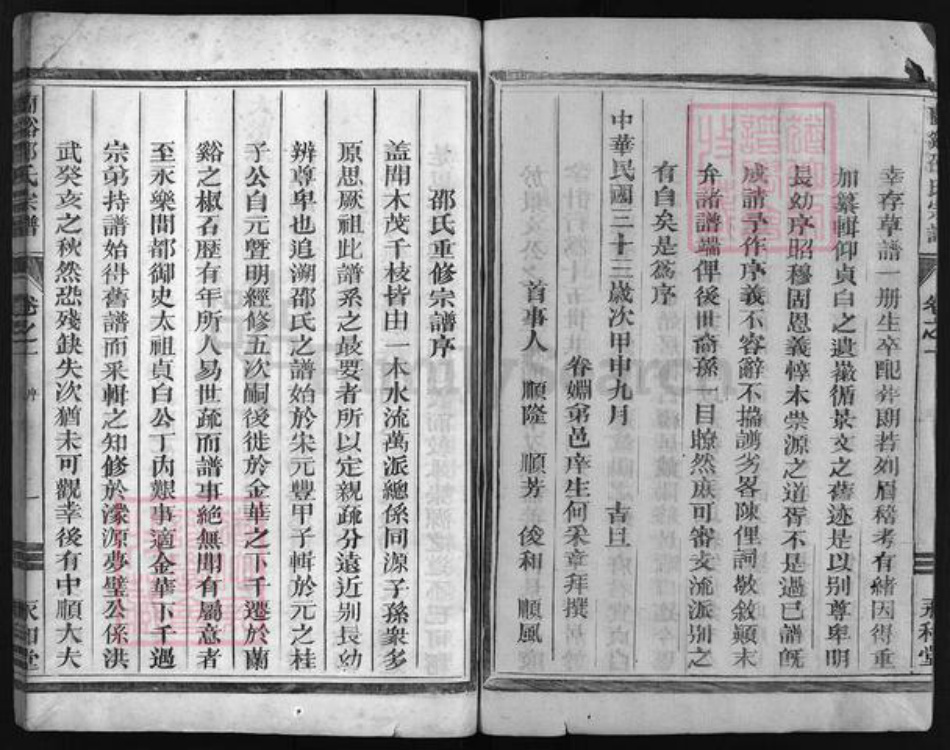 幸存草譜一册生卒配葬朗若列眉稽考有緒因得重
加纂輯仰貞白之遺徽循景文之舊迹是以别尊卑明
長幼序昭穆固恩義惇本崇源之道胥不是過已譜旣
成請予作序義不容辭不揣謭劣畧陳俚詞敬敘顛末
弁諸譜端俾後世裔孫一目瞭然庶可審支流派别之
有自矣是爲序
中華民國三十三歲次甲申九月 吉旦
眷婣弟邑庠生何采章拜撰
首事人 順隆 順芳 俊和 順風
卷之一
永和堂
邵氏重修宗譜序
盖聞木茂千枝皆由一本水流萬派總係同源子孫衆多
原思厥祖此譜系之最要者所以定親疏分遠近别長幼
辨尊卑也追溯邵氏之譜始於宋元豐甲子輯於元之桂
子公自元曁明經修五次嗣後徙於金華之下千遷於蘭
谿之椒石歷有年所人易世疏而譜事絶無聞有屬意者
至永樂間都御史太祖貞白公丁内艱事適金華下千過
宗弟持譜始得舊譜而采輯之知修於濛源夢璧公係洪
武癸亥之秋然恐殘缺失次猶未可觀幸後有中順大夫
蘭谿邵氏宗譜
卷之一
序
一
永和堂